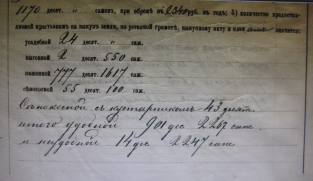 1170 десят. „ сажен, при оброкѣ въ 2340 руб. въ годъ; 5) количество предостав-
ленной крестьянамъ на выкупъ земли, по уставной грамотѣ, выкупному акту и
усадебной 24 десят. „ саж.
выгонной 2 десят. 550 саж.
пахатной 777 десят. 1617 саж.
сѣнокосной 55 десят. 100 саж.
Сѣнокосной съ кустарникомъ 43 десят.
итого удобной 901 дес 2267 саж.
и неудобной 14 дес 2247 саж